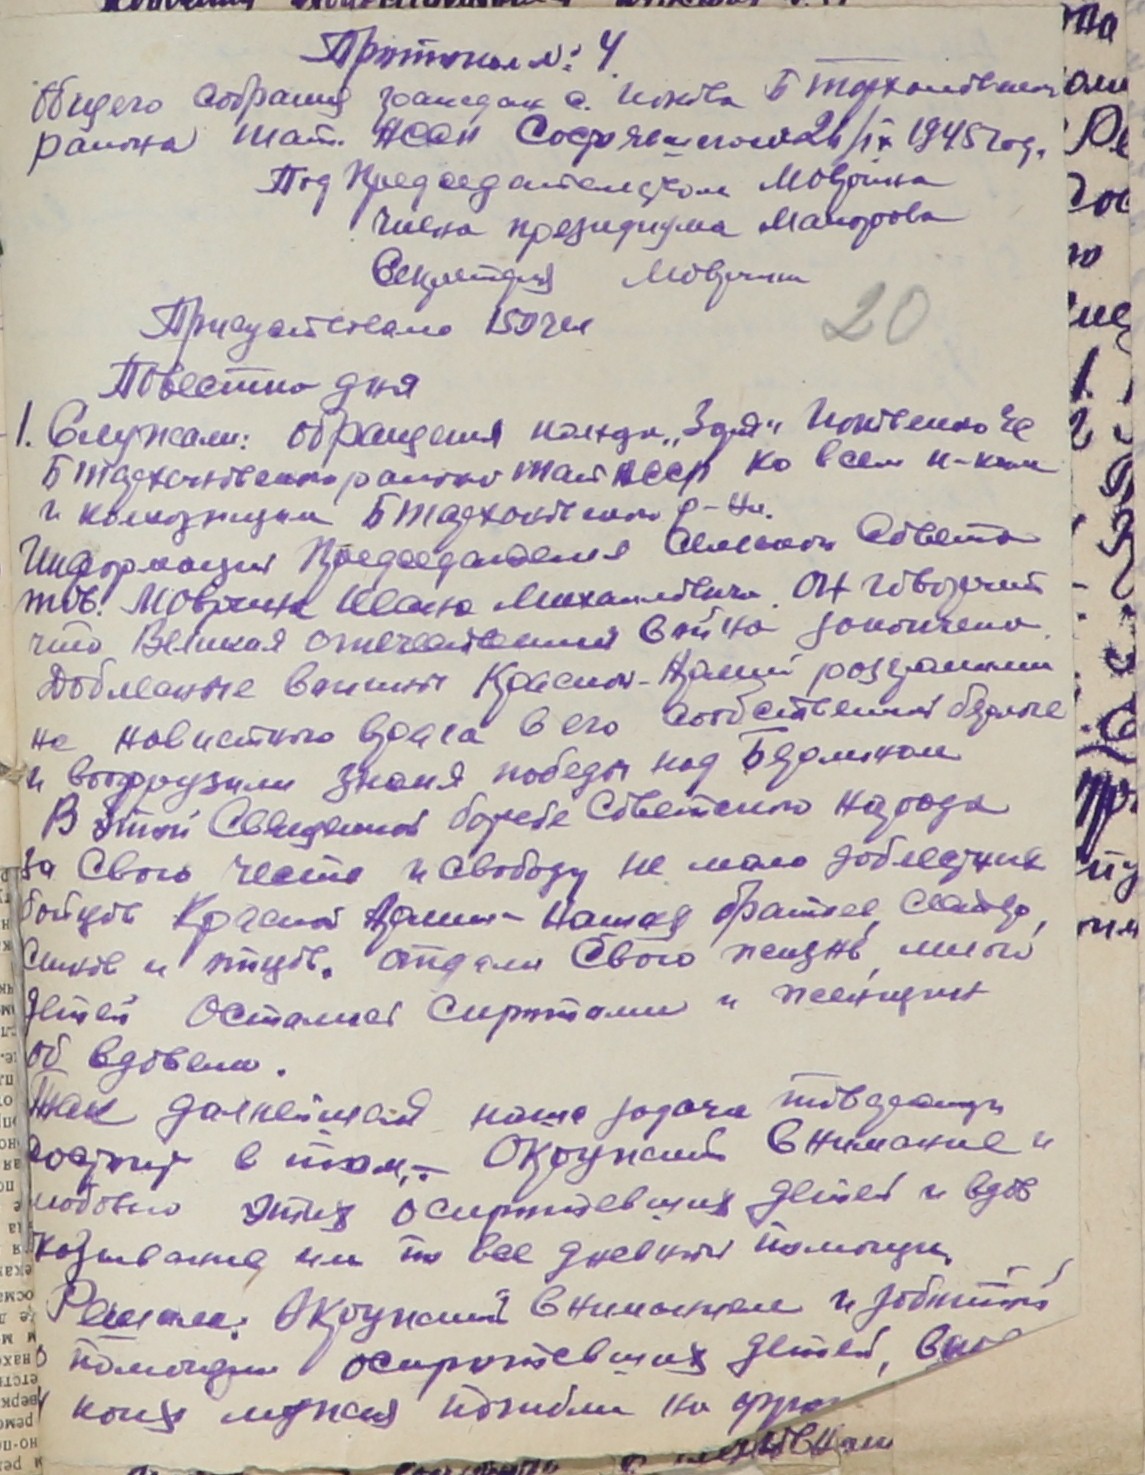 Протокол №: 4
Общего собрания граждан с. Б Тарханского
района Тат. АССР Состоявшегося 21/IX 1945 год.
Под Председательством Моврина
Члена президиума Майорова
Секретаря Моврин
Присутствовало 150 чел
20
Повестка дня
1. Служали: обращения колхоза „Заря"
Б Тарханского района ТатАССР ко всем к-кам
и колхозницам Б Тарханского р-на.
Информация Председателя Сельского Совета
тов. Моврина Ивана Михайловича. Он говорит
что Великая отечественная война закончена.
Доблесные воины Красной-Армии розгромили
не навистного врага в его собственной берлоге
и водрузили знамя победы над Берлином
В этой Священной борьбе Советского народа
За Свою честь и свободу не мало доблестных
бойцов Красной Армии- наших братьев,
сынов и отцов. отдали Свою жизнь, много
детей Остались Сиротами и женщин
об вдовели.
Так далнейшая наша задача товарищи
состоит в том,- Окружить внимание и
любовью этих осиротевших детей и вдов
казывание им по все дневной помощи,
Решили: Окружить вниманием и заботой
помощи осиротевших детей,
у коих мужья погибли на